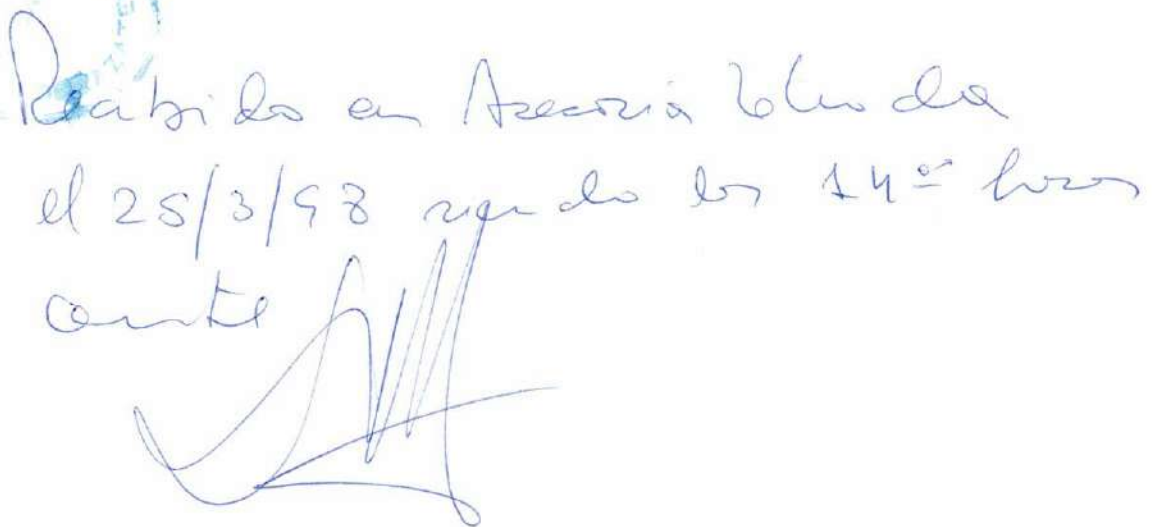 Recibido en Asesoría
el 25/3/98 siendo las 14 º horas
conste